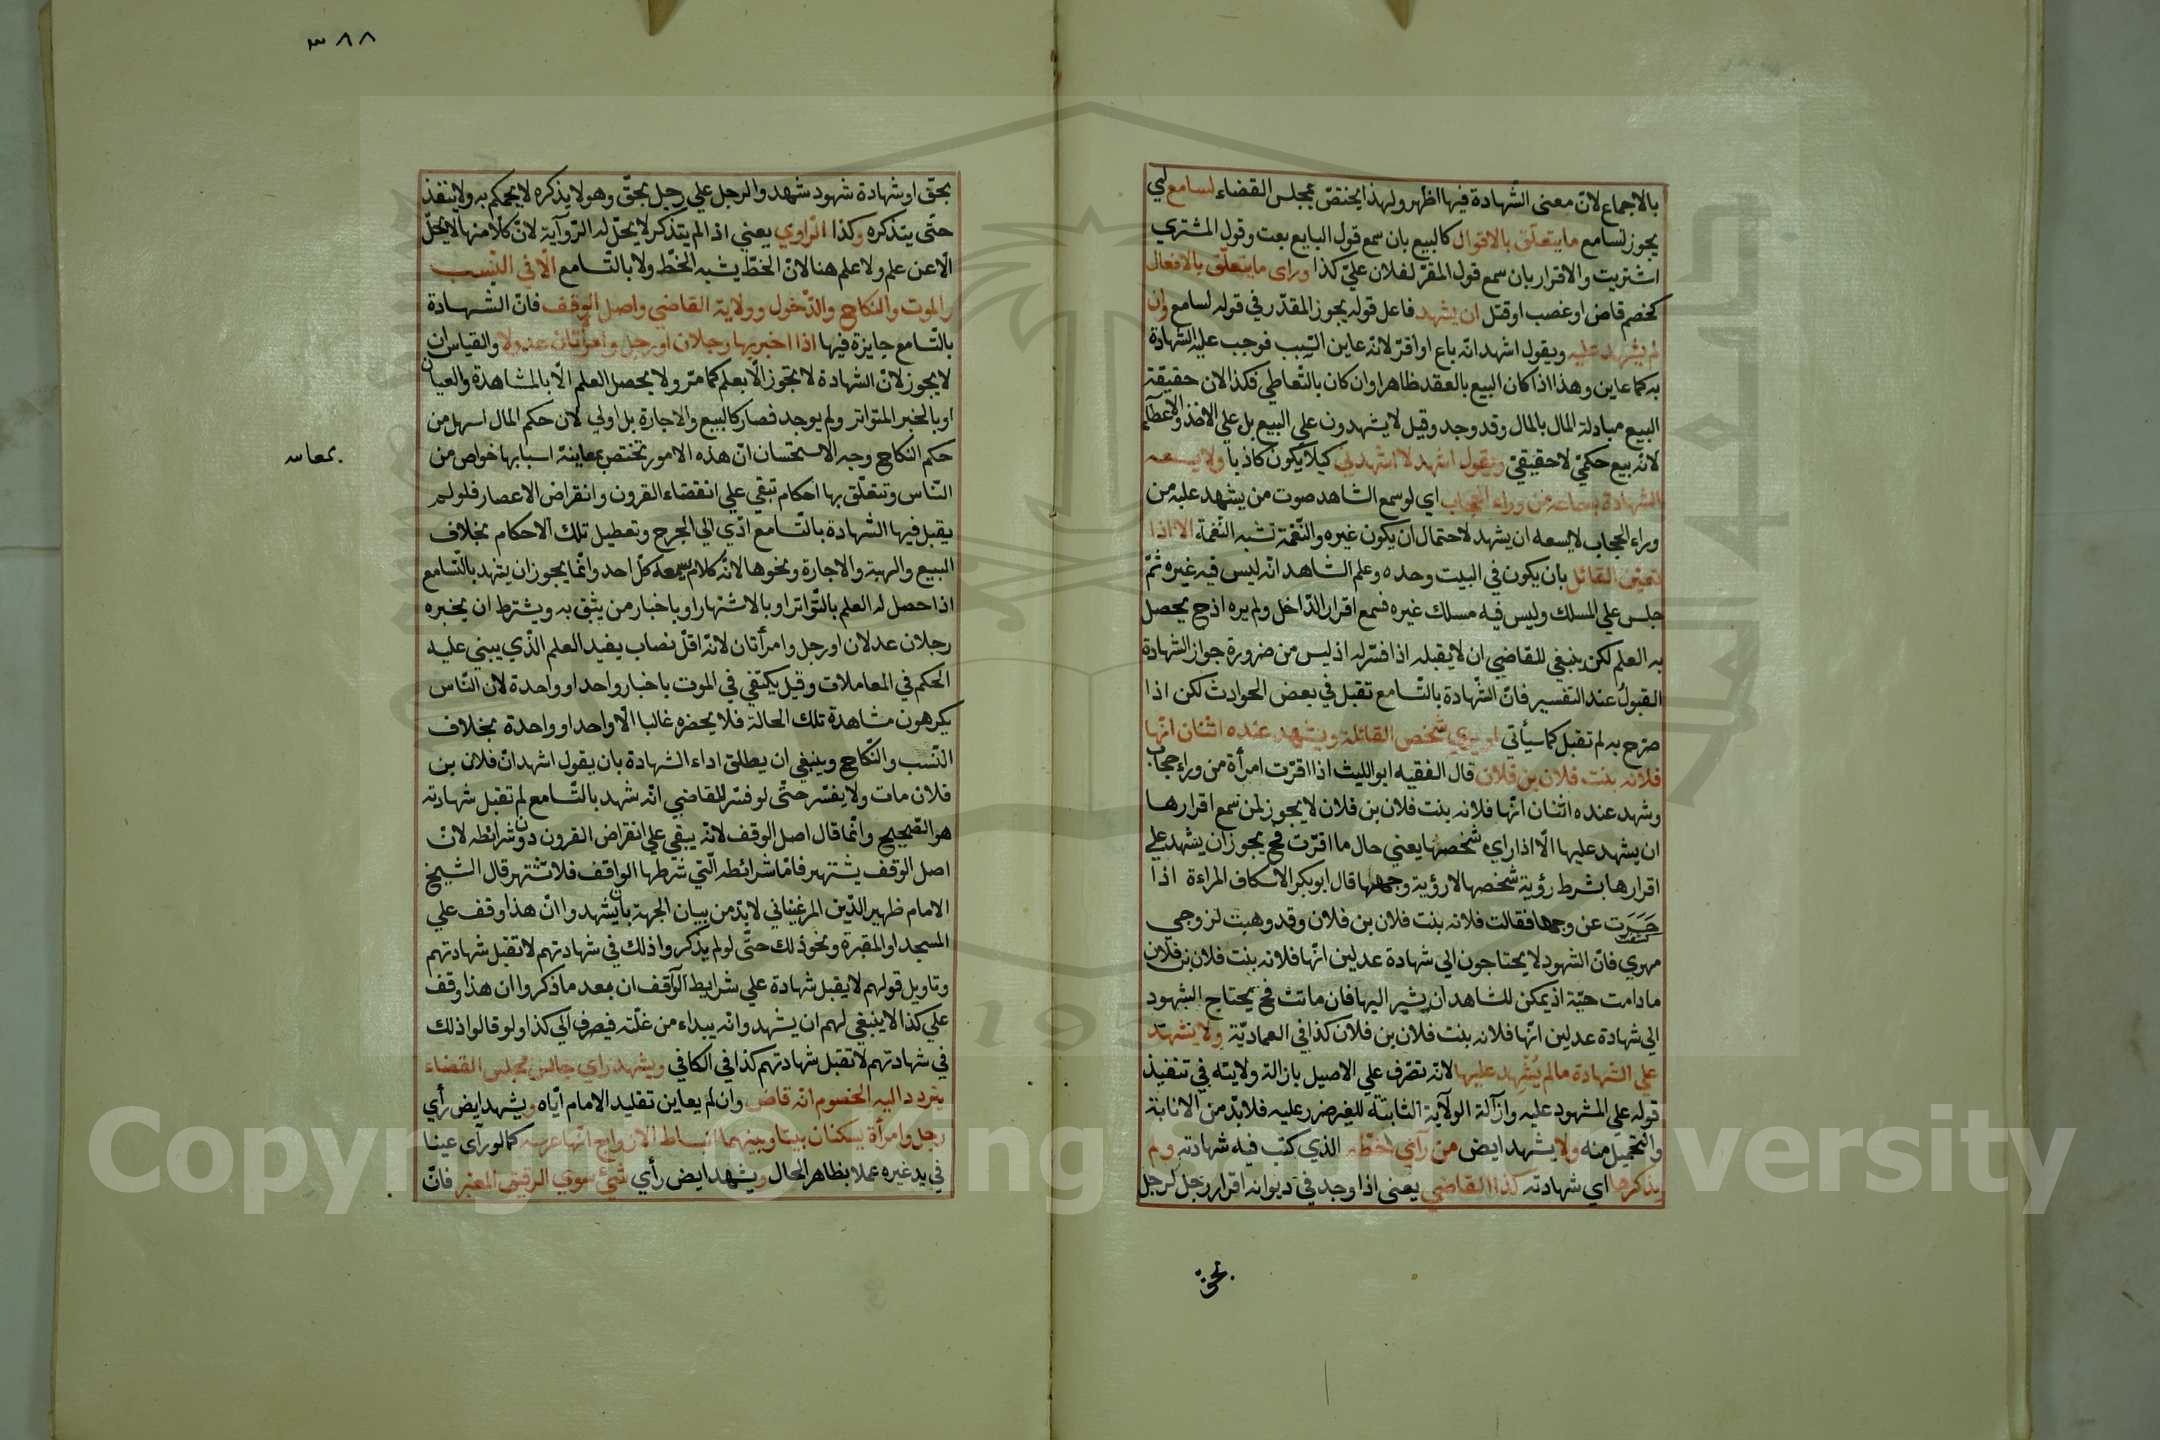 بالاجماع لانّ معنى الشّهادة فيها اظهر ولهذا يختصّ بمجلس القضاء لسامع اي
يجوز لسامع ما يتعلّق بالاقوال كالبيع بان سمع قول البايع بعت وقول المشتري
اشتريت والاقرار بان سمع قول المقرّ لفلان عليّ كذا وراى ما يتعلّق بالافعال
كخصم قاض او غصب او قتل ان يشهد فاعل قوله يجوز المقدّر في قوله لسامع وان
لم يشهد عليه ويقول اشهد انّه باع او اقرّ لانّه عاين السّبب فوجب عليه الشهادة
به كما عاين وهذا اذا كان البيع بالعقد ظاهرا وان كان بالتّعاطي فكذا لان حقيقة
البيع مبادلة المال بالمال وقد وجد وقيل لا يشهدون علي البيع بل علي الاخذ والاعطآء
لانّه بيع حكميّ لا حقيقيّ ويقول اشهد لا اشهدني كيلا يكون كاذبا ولا يسعه
الشهادة بسماعه من وراء الحجاب اي لو سمع الشاهد صوت من يشهد عليه من
وراء الحجاب لا يسعه ان يشهد لاحتمال ان يكون غيره والنّغمة تشبه النّغمة الا اذا
تعيّن القائل بان يكون في البيت وحده وعلم الشاهد انّه ليس فيه غيره ثمّ
جلس علي المسلك وليس فيه مسلك غيره فسمع اقرار الدّاخل ولم يره اذ ح يحصل
به العلم لكن ينبغي للقاضي ان لا يقبله اذا فسّر له اذ ليس من ضرورة جواز الشهادة
القبول عند التفسير فانّ الشّهادة بالتّسامع تقبل في بعض الحوادث لكن اذا
صرّح به لم تقبل كما سيأتي او يري شخص القائلة ويشهد عنده اثنان انّها
فلانه بنت فلان بن فلان قال الفقيه ابو الليث اذا اقرّت امرأة من وراء حجاب
وشهد عنده اثنان انّها فلانه بنت فلان بن فلان لا يجوز لمن سمع اقرارها
ان يشهد عليها الّا اذا راى شخصها يعني حال ما اقرّت فح يجوز ان يشهد علي
اقرارها بشرط رؤية شخصها لا رؤية وجهها قال ابو بكر الاسكاف المراءة اذا
حَسَرَت عن وجهها فقالت فلانه بنت فلان بن فلان وقد وهبت لزوجي
مهري فانّ الشهود لا يحتاجون الي شهادة عدلين انّها فلانه بنت فلان بن فلان
ما دامت حيّة اذ يمكن للشاهد ان يشير اليها فان ماتت فح يحتاج الشهود
الي شهادة عدلين انّها فلانه بنت فلان بن فلان كذا في العماديّة ولا يشهد
علي الشهادة ما لم يُشْهِد عليها لانّه تصّرف علي الاصيل بازالة ولايته في تنفيذ
قوله علي المشهود عليه وازآلة الولآية الثابتة للغير ضرر عليه فلا بدّ من الانابة
والتحميل منه ولا يشهد ايض من رآي خطّه الذي كتب فيه شهادته ولم
يذكرها اي شهادته كذا القاضي يعنى اذا وجد في ديوانه اقرار رجل لرجل
بحق
٣٨٨
بحقّ او شهادة شهود شهدوا لرجل علي رجل بحقّ وهو لا يذكره لا يحكم به ولا ينفذ
حتّى يتذكره وكذا الرّاوي يعني اذا لم يتذكر لا يحلّ له الرّوآية لانّ كلّا منها لا يحلّ
الّا عن علم ولا علم هنا لانّ الخطّ يشبه الخطّ ولا بالتّسامع الّا في النّسب
والموت والنكاح والدّخول وولاية القاضي واصل الوقف فانّ الشهادة
بالتّسامع جايزة فيها اذا اخبر بها رجلان او رجل وامرأتان عدولا والقياس ان
لا يجوز لانّ الشهادة لا تجوز الّا بعلم كما مرّ ولا يحصل العلم الّا بالمشاهدة والعيان
او بالخبر المتواتر ولم يوجد فصار كالبيع والاجارة بل اولي لان حكم المال اسهل من
حكم النكاح وجه الاستحسان انّ هذه الامور تختص بمعاينة اسبابها خواص من
بمعاينه
النّاس وتتعلّق بها احكام تبقي علي انقضاء القرون وانقراض الاعصار فلو لم
يقبل فيها الشّهادة بالتّسامع ادّي الي الحرج وتعطيل تلك الاحكام بخلاف
البيع والهبة والاجارة ونحوها لانّه كلام يسمعه كلّ احد وانّما يجوز ان يشهد بالتّسامع
اذا حصل له العلم بالتّواتر او بالاشتهار او باخبار من يثق به ويشترط ان يخبره
رجلان عدلان او رجل وامرأتان لانّه اقلّ نصاب يفيد العلم الذّي يبني عليه
الحكم في المعاملات وقيل يكتفي في الموت باخبار واحد او واحدة لان النّاس
يكرهون مشاهدة تلك الحالة فلا يحضره غالبا الّا واحد او واحدة بخلاف
النّسب والنّكاح وينبغي ان يطلق اداء الشهادة بان يقول اشهد انّ فلان بن
فلان مات ولا يفسّر حتّى لو فسّر للقاضي انّه شهد بالتّسامع لم تقبل شهادته
هو الصّحيح وانّما قال اصل الوقف لانّه يبقي علي انقراض القرون دون شرائطه لانّ
اصل الوقف يشتهر فامّا شرائطه الّتي شرطها الواقف فلا تشتهر قال الشيخ
الامام ظهير الدّين المرغيناني لا بدّ من بيان الجهة بان يشهدوا انّ هذا وقف علي
المسجد او المقبرة ونحو ذلك حتّى لو لم يذكروا ذلك في شهادتهم لا تقبل شهادتهم
وتاويل قولهم لا يقبل شهادة علي شرايط الوآقف ان بعد ما ذكروا ان هذا وقف
علي كذا لا ينبغي لهم ان يشهدوا انّه يبداء من غلّته فيصرف الي كذا ولو قالوا ذلك
في شهادتهم لا تقبل شهادتهم كذا في الكافي ويشهد راي جالس مجلس القضاء
يتردد اليه الخصوم انّه قاض وان لم يعاين تقليد الامام ايّاه ويشهد ايض رأي
رجل وامرأة يسكنان بيتا وبينهما انبساط الازواج انّها عرسه كما لو رآى عينا
في يد غيره عملا بظاهر الحال ويشهد ايض رأي شئ سوي الرقيق المعبّر فانّ